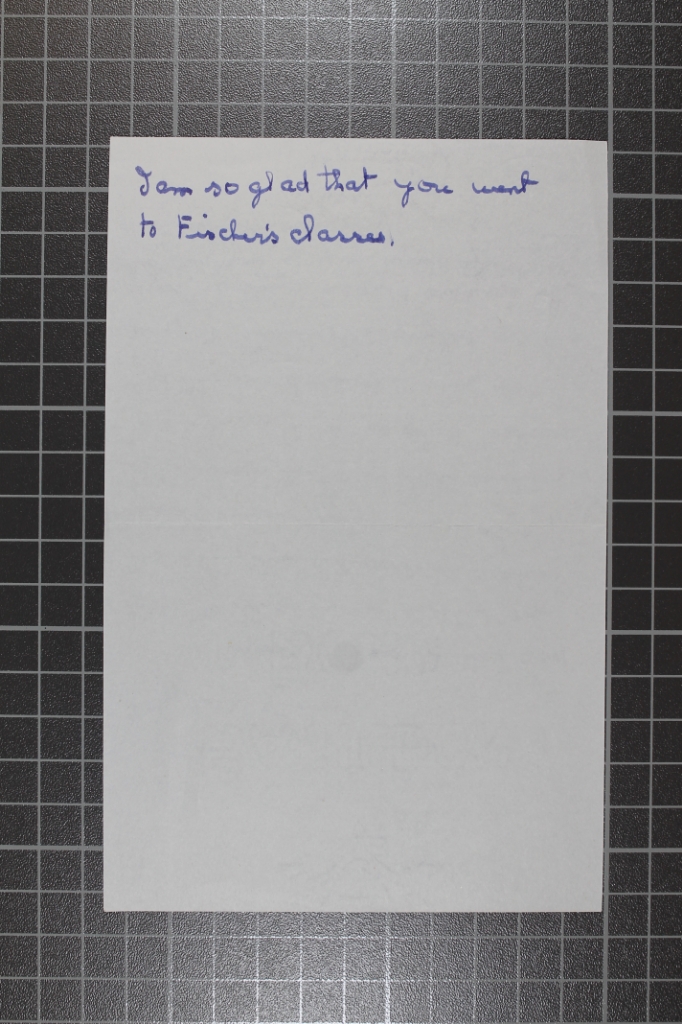 I am so glad that you went
to Fischer's classes.